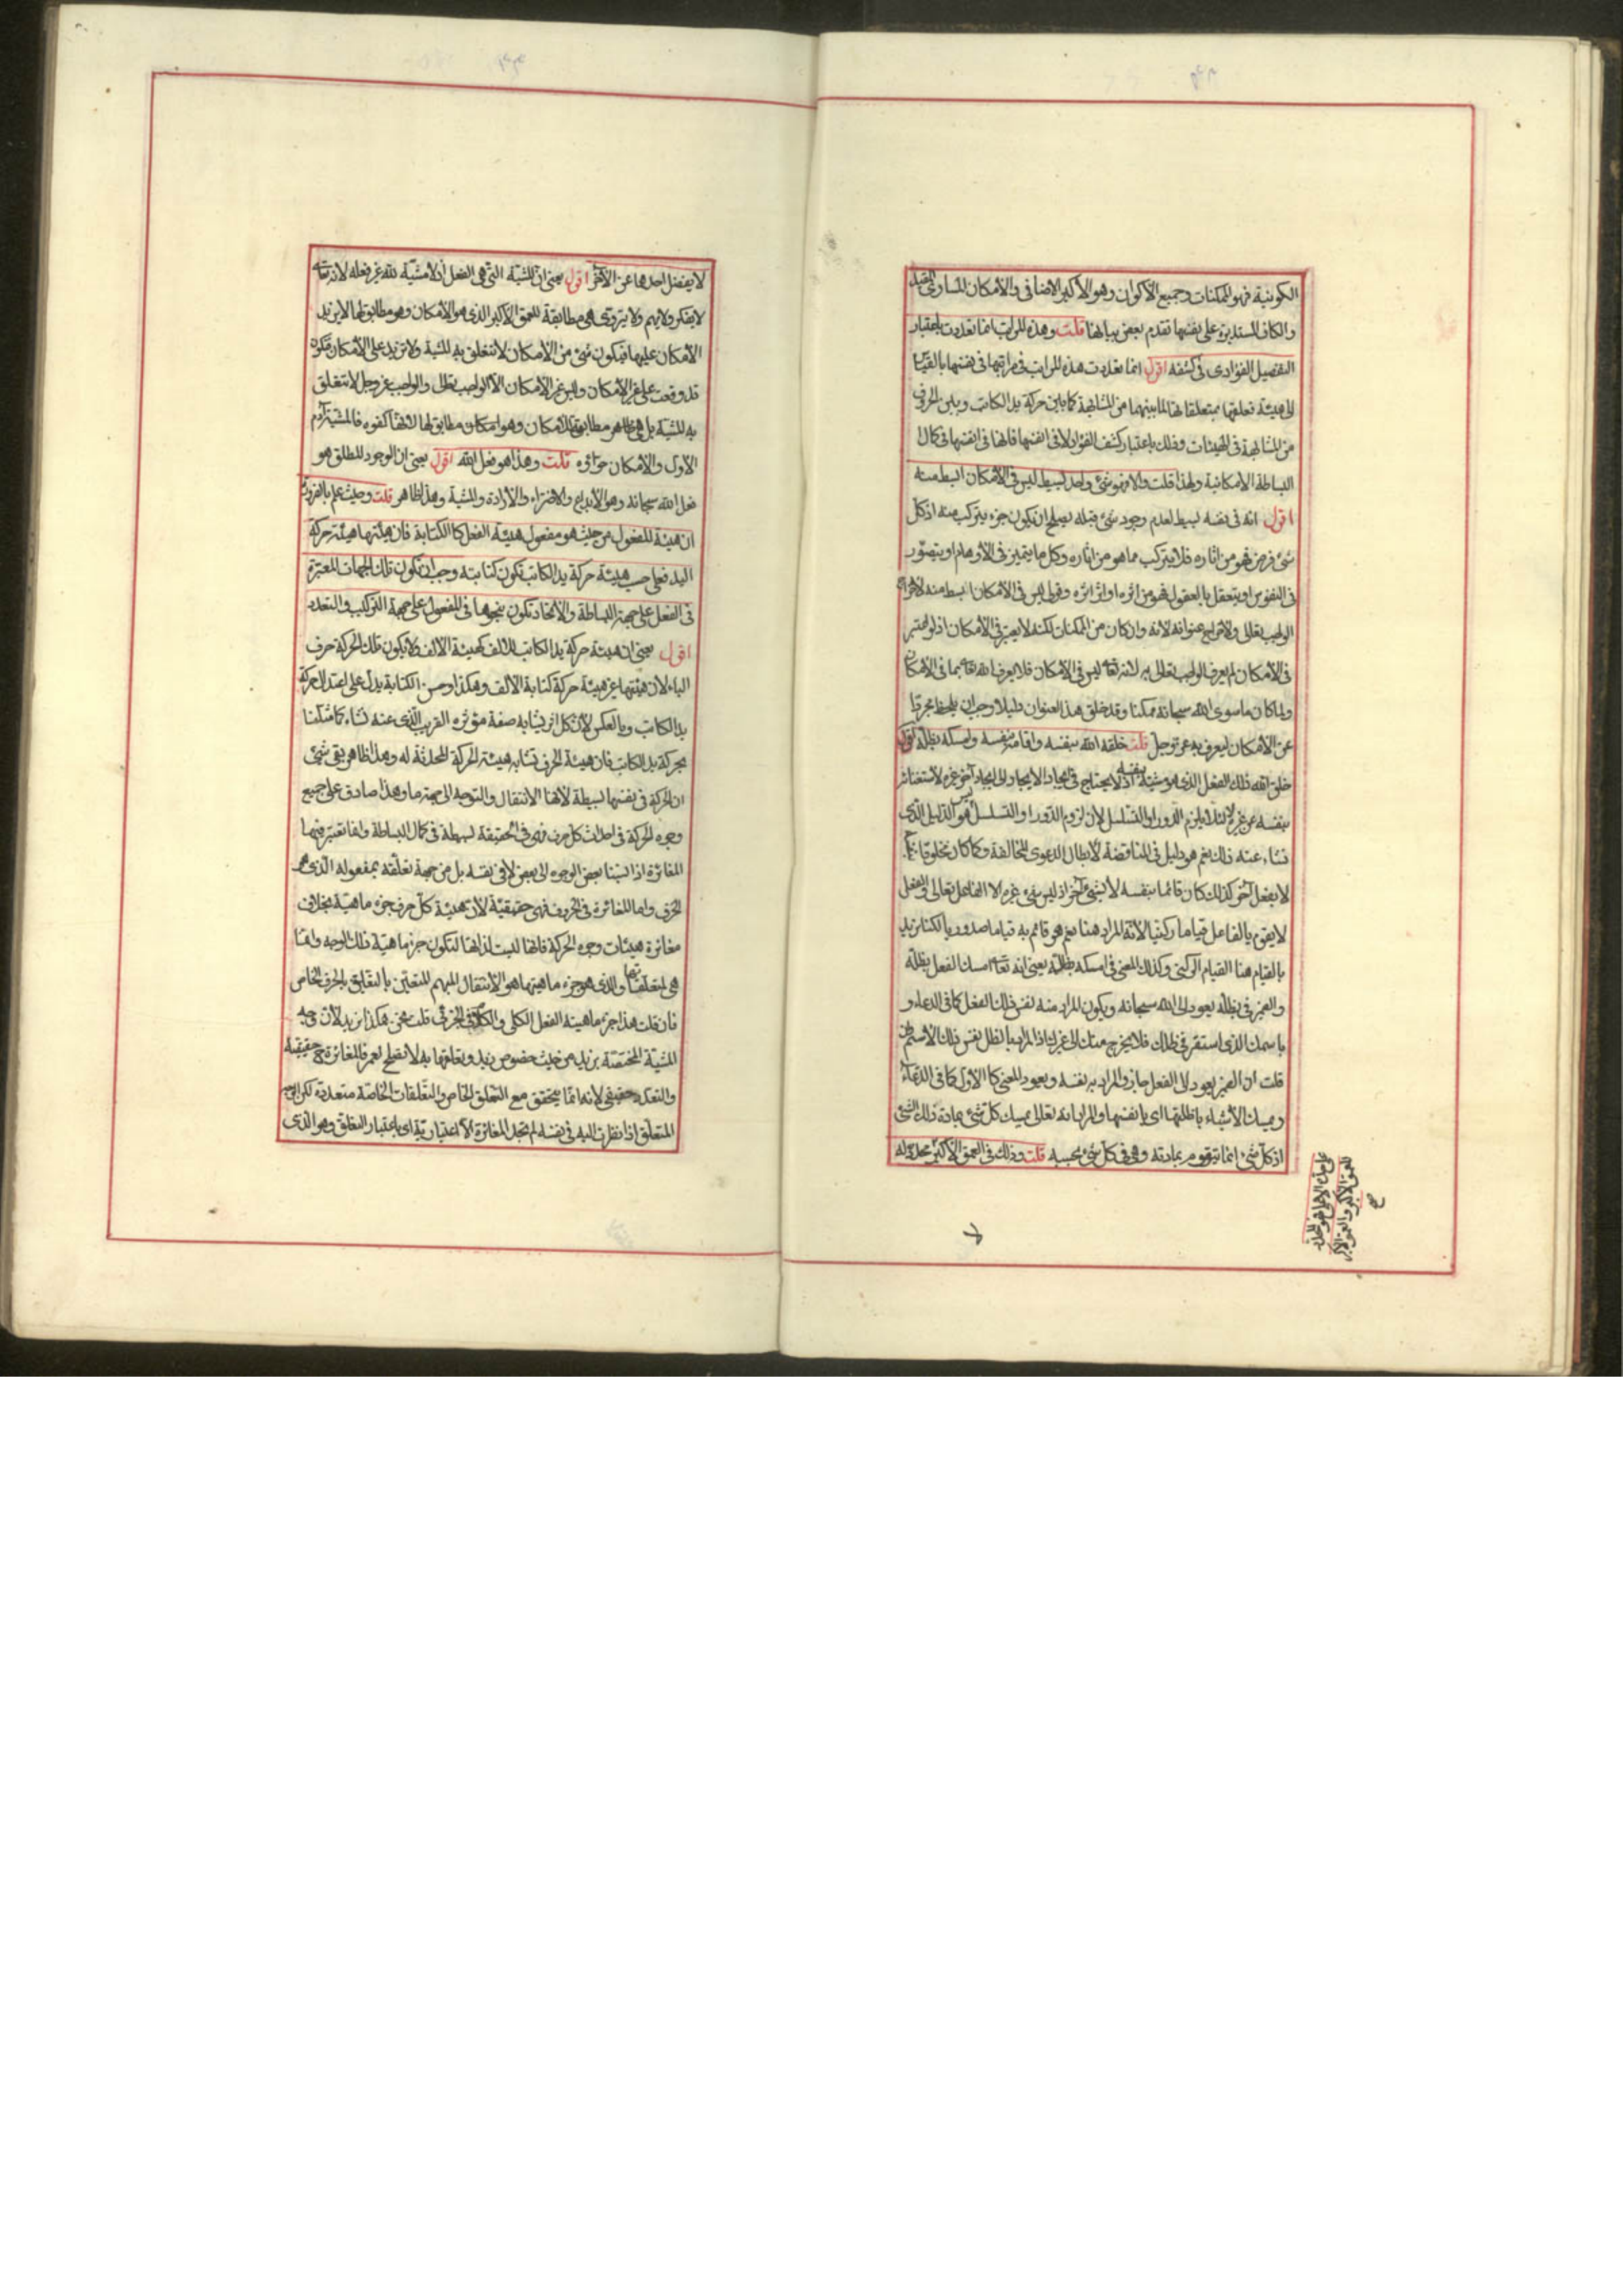 الكونية فهو الممكنات وجميع الأكوان وهو الأكبر الاضافى والأمكان المساوى
والكاف المستديرة على نفسها تقدم بعض بيانها قلت وهذه المراتب انما تعددت باعتبار
التفصيل الفؤادى فى كشفه اقول انما تعددت هذه المراتب فى مراتبها فى نفسها بالقياس
الى هيئة تعلقها بمتعلقاتها لما بينهما من المشابهة كما بين حركة يد الكاتب وبين الحروف
من المشابهة فى الهيئات وذلك باعتبار كشف الفؤاد لا فى انفسها فانها فى انفسها فى كمال
البساطة الامكانية ولهذا قلت والا فهو شئ واحد بسيط ليس فى الأمكان ابسط منه
اقول انه فى نفسه بسيط لعدم وجود شئ قبله يصلح ان يكون جزء يتركب منه اذ كل
شئ فرض فهو من اثاره فلا يتركب مما هو من اثاره وكل ما يتميز فى الأوهام او يتصور
فى النفوس او يتعقل بالعقول فهو من اثره او اثر اثره وقولى ليس فى الأمكان ابسط منه لاخراج
الواجب تعالى ولاخراج عنوانه لانه وان كان من الممكنات لكنه لا يعتبر فى الأمكان اذ لو اعتبر
فى الأمكان لم يعرف الواجب تعالى به لانه تعالى ليس فى الأمكان فلا يعرف الله تعالى بما فى الأمكان
ولما كان ما سوى الله سبحانه ممكنا وقد خلق هذا العنوان دليلا وجب ان يلحظ مجردا
عن الأمكان ليعرف به عز وجل قلت خلقه الله بنفسه واقامه بنفسه وامسكه بظله اقول
خلق الله ذلك الفعل الذى هو مشيته بنفسه اذ لا يحتاج فى ايجاد الايجاد الى ايجاد آخر غيره لأستغنائه
بنفسه عن غيره لا لئلا يلزم الدور او التسلسل لأن لزوم الدور او التسلسل ليس هو الدليل الذى
نشاء عنه ذلك نعم هو دليل فى المناقضة لأبطال الدعوى المخالفة وكما كان مخلوقا
لا بفعل آخر كذلك كان قائما بنفسه لا بشئ آخر اذ ليس شئ غيره الا الفاعل تعالى والفعل
لا يقوم بالفاعل قياما ركنيا لأنه المراد هنا نعم هو قائم به قياما صدوريا لكنا نريد
بالقيام هنا القيام الركنى وكذلك المعنى فى امسكه بظله يعنى انه تعالى امسك الفعل بظله
والضمير فى بظله يعود الى الله سبحانه ويكون المراد منه نفس ذلك الفعل كما فى الدعاء و
باسمك الذى استقر فى ظلك فلا يخرج منك الى غيرك اذ المراد بالظل نفس ذلك الاسم فان
قلت ان الضمير يعود الى الفعل جاز والمراد به نفسه ويعود المعنى كالأول كما فى الدعاء
ويمسك الأشياء باظلتها اى بانفسها والمراد انه تعالى يمسك كل شئ بمادة ذلك الشئ
اذ كل شئ انما يتقوم بمادته وهى فى كل شئ بحسبه قلت وذلك فى العمق الأكبر
لا يفضل احدهما عن الأخر اقول يعنى ان المشية التى هى الفعل اذ لا مشية لله غير فعله لانه تعالى
لا يفكر ولا يهم ولا يتروى هى مطابقة للعمق الأكبر الذى هو الأمكان وهو مطابق لها لا يزيد
الأمكان عليها فيكون شئ من الأمكان لا تتعلق به المشية ولا تزيد على الأمكان فتكون
قد وقعت على غير الأمكان وليس غير الأمكان الا الواجب تعالى والواجب عز وجل لا تتعلق
به المشية بل هى مطابقة للأمكان وهو امكان مطابق لها لانها كفوه فالمشية آدم
الأول والأمكان حوائه قلت وهذا هو فعل الله اقول يعنى ان الوجود المطلق هو
فعل الله سبحانه وهو الأبداع والاختراع والأرادة والمشية وهذا ظاهر قلت وحيث علم بالضرورة
ان هيئة المفعول من حيث هو مفعول هيئة الفعل كالكتابة فان هيئتها هيئة حركة
اليد فعلى حسب هيئة حركة يد الكاتب تكون كتابته وجب ان تكون تلك الجهات المعتبرة
فى الفعل على جهة البساطة والأتحاد تكون بنحوها فى المفعول على جهة التركيب والتعدد
اقول يعنى ان هيئة حركة يد الكاتب للالف كهيئة الألف فلا يكون تلك الحركة حرف
الباء لان هيئتها غير هيئة حركة كتابة الألف وهكذا وحسن الكتابة يدل على اعتدال حركة
يد الكاتب وبالعكس لأن كل اثر يشابه صفة مؤثره القريب الذى عنه نشاء كما مثلنا
بحركة يد الكاتب فان هيئة الحرف تشابه هيئة الحركة المحدثة له وهذا ظاهر بقى شئ
ان الحركة فى نفسها بسيطة لأنها الانتقال والتوجه الى جهة ما وهذا صادق على جميع
وجوه الحركة فى احداث كل حرف فهى فى الحقيقة بسيطة فى كمال البساطة وانما تعتبر فيها
المغائرة اذا نسبنا بعض الوجوه الى بعض لا فى نفسه بل من جهة تعلقه بمفعوله الذى هو
الحرف واما المغائرة فى الحروف فهى حقيقية لأن هيئة كل حرف جزء ماهية بخلاف
مغائرة هيئات وجوه الحركة فانها ليست لذاتها لتكون جزء ماهية ذلك الوجه وانما
هى لمتعلقاتها والذى هو جزء ماهيتها هو الأنتقال المبهم المتعين بالتعلق بالحرف الخاص
فان قلت هذا جزء ماهية الفعل الكلى والكلام فى الجزئى قلت نحن هكذا نريد لأن وجه
المشية المختصة بزيد من حيث خصوص زيد وتعلقها به لا تصلح لعمرو فالمغائرة حقيقية
والتعدد حقيقى لانه انما يتحقق مع التعلق الخاص والتعلقات الخاصة متعددة لكن الوجه
المتعلق اذا نظرت اليه فى نفسه لم تجد المغائرة الا اعتبارية اى باعتبار التعلق وهو الذى